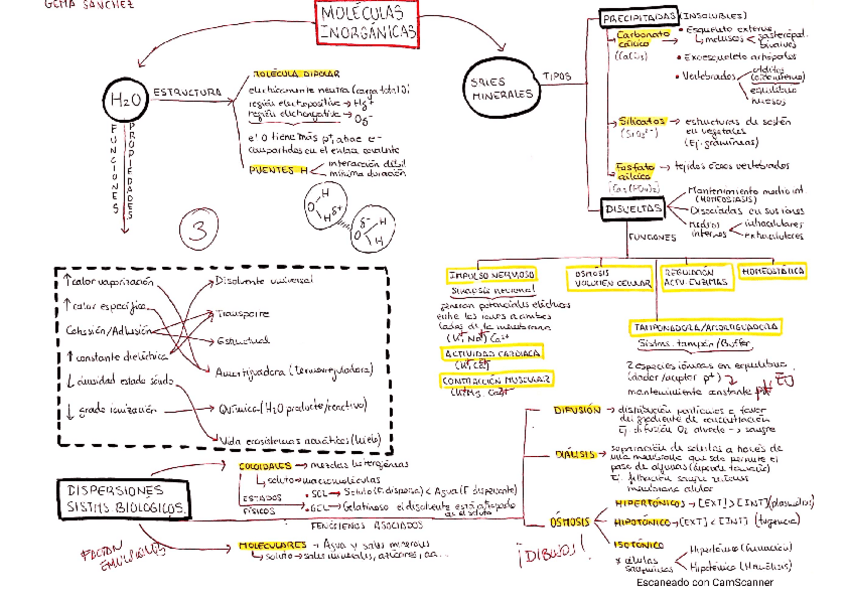 GEMA SÁNCHEZ
MOLÉCULAS
INORGÁNICAS
H2O
ESTRUCTURA
FUNCIONES
PROPIEDADES
MOLÉCULA DIPOLAR
eléctricamente neutra (carga total 0)
región electropositiva → H
región electronegativa → O
el O tiene más p+, atrae e-
compartidos en el enlace covalente
PUENTES H
interacción débil
mínima duración
3
SALES
MINERALES
TIPOS
PRECIPITADAS (INSOLUBLES)
Carbonato
cálcico
• Esqueleto externo
moluscos
gasterópod.
bivalvos
• Exoesqueleto artrópodos
• Vertebrados
otolitos
(oído interno)
equilibrio
huesos
Silicatos → estructuras de sostén
en vegetales
(Ej. gramíneas)
Fosfato
cálcico → tejidos óseos vertebrados
DISUELTAS
Mantenimiento medio int
(HOMEOSTASIS)
Disociadas en sus iones
Medios
internos
intracelulares
extracelulares
FUNCIONES
IMPULSO NERVIOSO
Sinapsis neuronal
generan potenciales eléctricos
entre las caras a ambos
lados de la membrana
(K+, Na+) Ca2+
ACTIVIDAD CARDÍACA
CONTRACCIÓN MUSCULAR
ÓSMOSIS
VOLUMEN CELULAR
REGULACIÓN
ACTV. ENZIMAS
HOMEOSTÁTICA
TAMPONADORA/AMORTIGUADORA
Sistms. tampón/Buffer
2 especies iónicas en equilibrio
(dador/aceptor p+)
mantenimiento constante pH
↑ calor vaporización
↑ calor específico
Cohesión/Adhesión
↑ constante dieléctrica
↓ densidad estado sólido
↓ grado ionización
Disolvente universal
Transporte
Estructural
Amortiguadora (termorreguladora)
Química (H2O producto/reactivo)
Vida ecosistemas acuáticos (hielo)
DISPERSIONES
SISTMS BIOLÓGICOS
COLOIDALES → mezclas heterogéneas
soluto → macromoléculas
ESTADOS
FÍSICOS
• SOL → Soluto (F. dispersa) < Agua (F. dispersante)
• GEL → Gelatinoso el disolvente está atrapado
en el soluto
FENÓMENOS ASOCIADOS
MOLECULARES → Agua y sales minerales
soluto → sales minerales, azúcares, aa...
FALTAN
EMULSIONES
¡DIBUJOS!
DIFUSIÓN → distribución partículas a favor
del gradiente de concentración
Ej difusión O2 alveolo → sangre
DIÁLISIS → separación de solutos a través de
una membrana que solo permite el
paso de algunos (depende tamaño)
Ej filtración sangre
membrana
ÓSMOSIS
HIPERTÓNICOS → [EXT] > [INT] (plasmólisis)
HIPOTÓNICO → [EXT] < [INT] (turgencia)
ISOTÓNICO
* células
sanguíneas
Hipertónico
Hipotónico (Hemólisis)
Escaneado con CamScanner